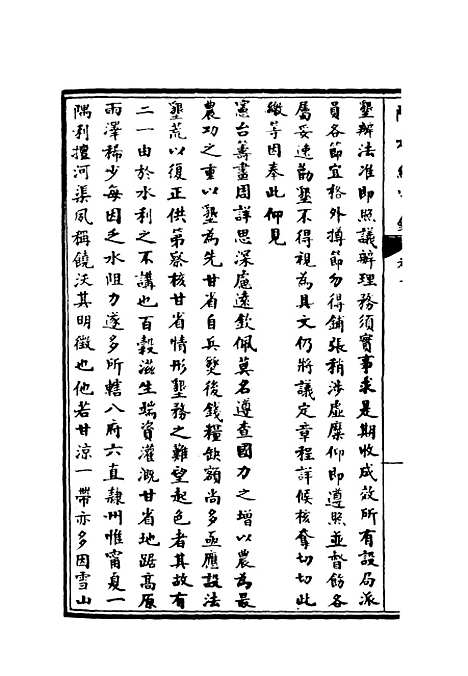 墾辦法准即照議辦理務須實事求是期收成效所有設局派
員各節宜格外撙節勿得鋪張稍涉虛糜仰即遵照並督飭各
屬妥速勸墾不得視為具文仍將議定章程詳候核奪切切此
繳等因奉此仰見
憲台籌畫周詳思深慮遠欽佩莫名遵查國力之增以農為最
農功之重以墾為先甘省自兵燹後錢糧缺額尚多亟應設法
墾荒以復正供第察核甘省情形墾務之難望起色者其故有
二一由於水利之不講也百穀滋生端資灌溉甘省地踞高原
雨澤稀少每因乏水阻力遂多所轄八府六直隸州惟甯夏一
隅利擅河渠夙稱饒沃其明徵也他若甘涼一帶亦多因雪山